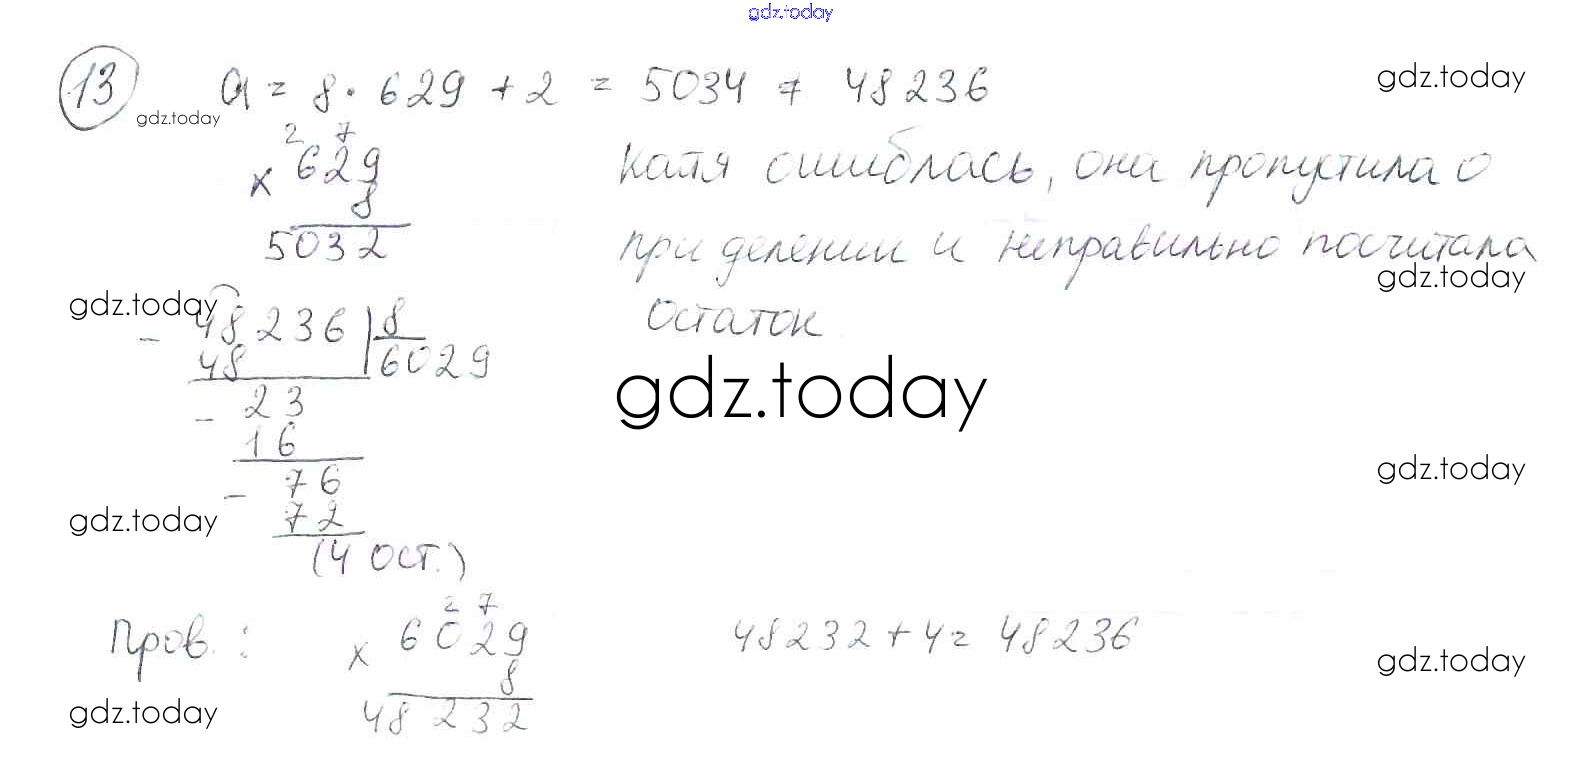 gdz.today
13 a = 8 · 629 + 2 = 5034 ≠ 48236
gdz.today
gdz.today
2 7
× 629
8
5032
Катя ошиблась, она пропустила 0
при делении и неправильно посчитала
остаток
gdz.today
gdz.today
- 48236 | 8
48 6029
- 23
16
- 76
72
(4 ост.)
gdz.today
gdz.today
gdz.today
Пров. :
2 7
× 6029
8
48232
48232 + 4 = 48236
gdz.today
gdz.today